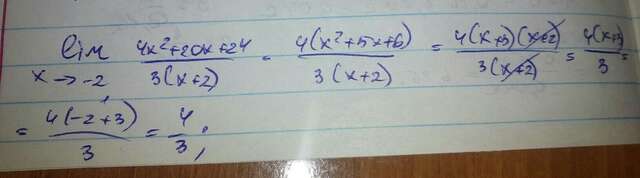 lim x→-2 (4x²+20x+24)/(3(x+2)) = (4(x²+5x+6))/(3(x+2)) = (4(x+3)(x+2))/(3(x+2)) = (4(x+3))/3 =
= (4(-2+3))/3 = 4/3;